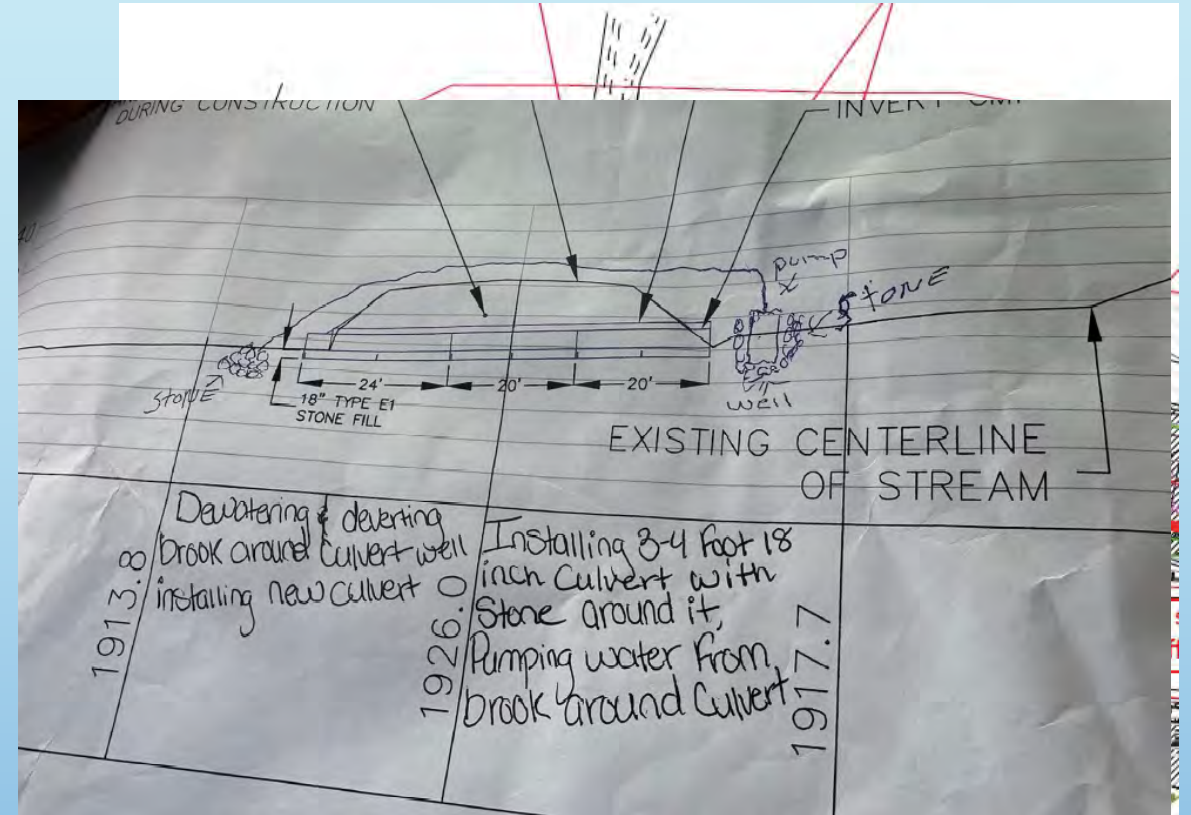 DURING CONSTRUCTION
INVERT
pump
STONE
STONE
24'
20'
20'
18" TYPE E1
STONE FILL
well
EXISTING CENTERLINE
OF STREAM
Dewatering & deverting
brook around Culvert well
installing new culvert
Installing 3-4 Foot 18
inch Culvert with
Stone around it,
Pumping water from
brook around Culvert
1913.8
1926.0
1917.7